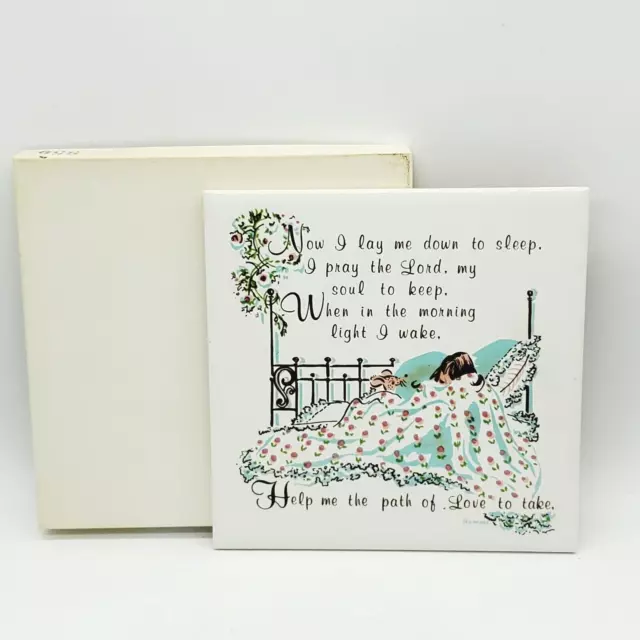 Now I lay me down to sleep.
I pray the Lord, my
soul to keep.
When in the morning
light I wake.
Help me the path of Love to take.